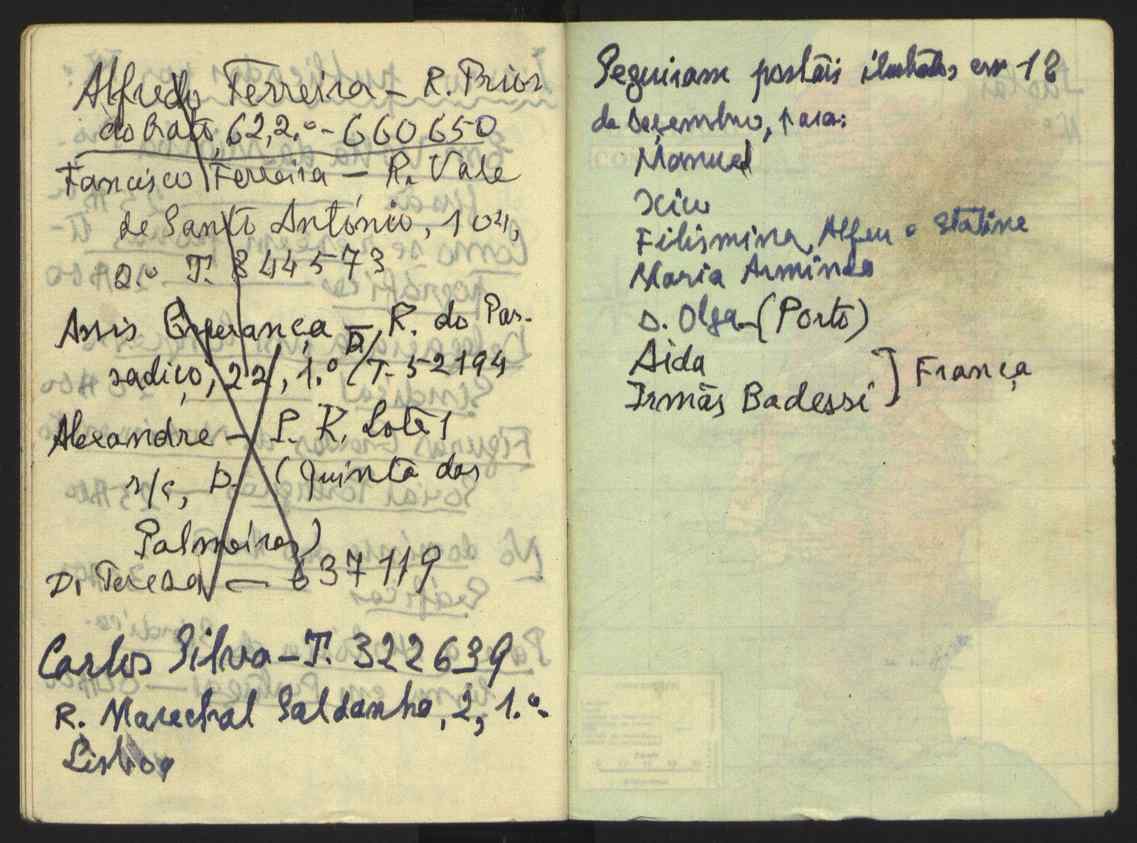 Alfredo Ferreira — R. Prior
do Crato, 62, 2.º - 660650
Francisco Ferreira — R. Vale
de Santo António, 104,
2.º T. 844573
Assis Esperança — R. do Pas-
sadiço, 22, 1.º D/ (T-52194
Alexandre — P. R. Lote 1
r/c, D. (Quinta das
Palmeiras)
D. Teresa — 637119
Carlos Silva — T. 322639
R. Marechal Saldanha, 2, 1.º -
Lisboa
Seguiram postais ilustrados em 18
de Dezembro, para:
Manuel
Xico
Filismina, e
Maria Arminda
D. Olga - (Porto)
Aida
Irmãs Badessi ] França